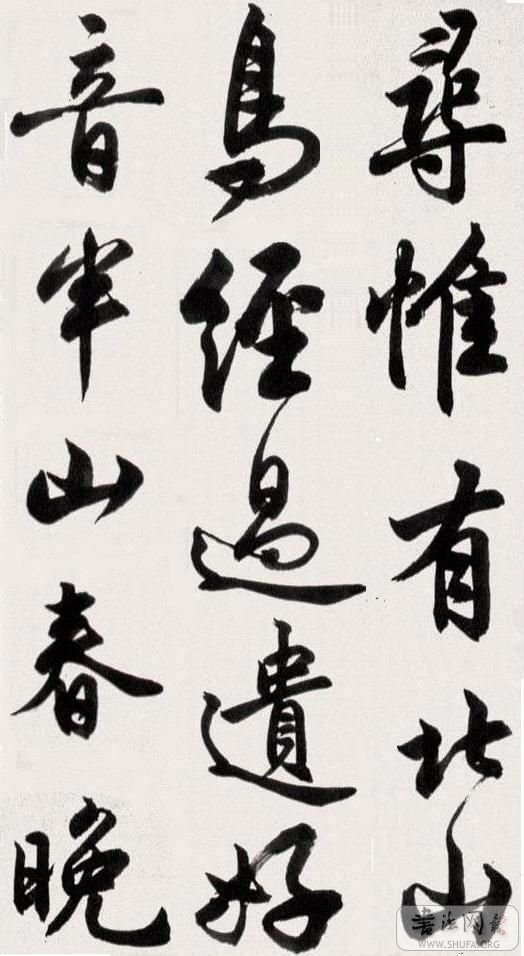 尋惟有北山
鳥經過遺好
音半山春晚
書法网
WWW.SHUFA.ORG